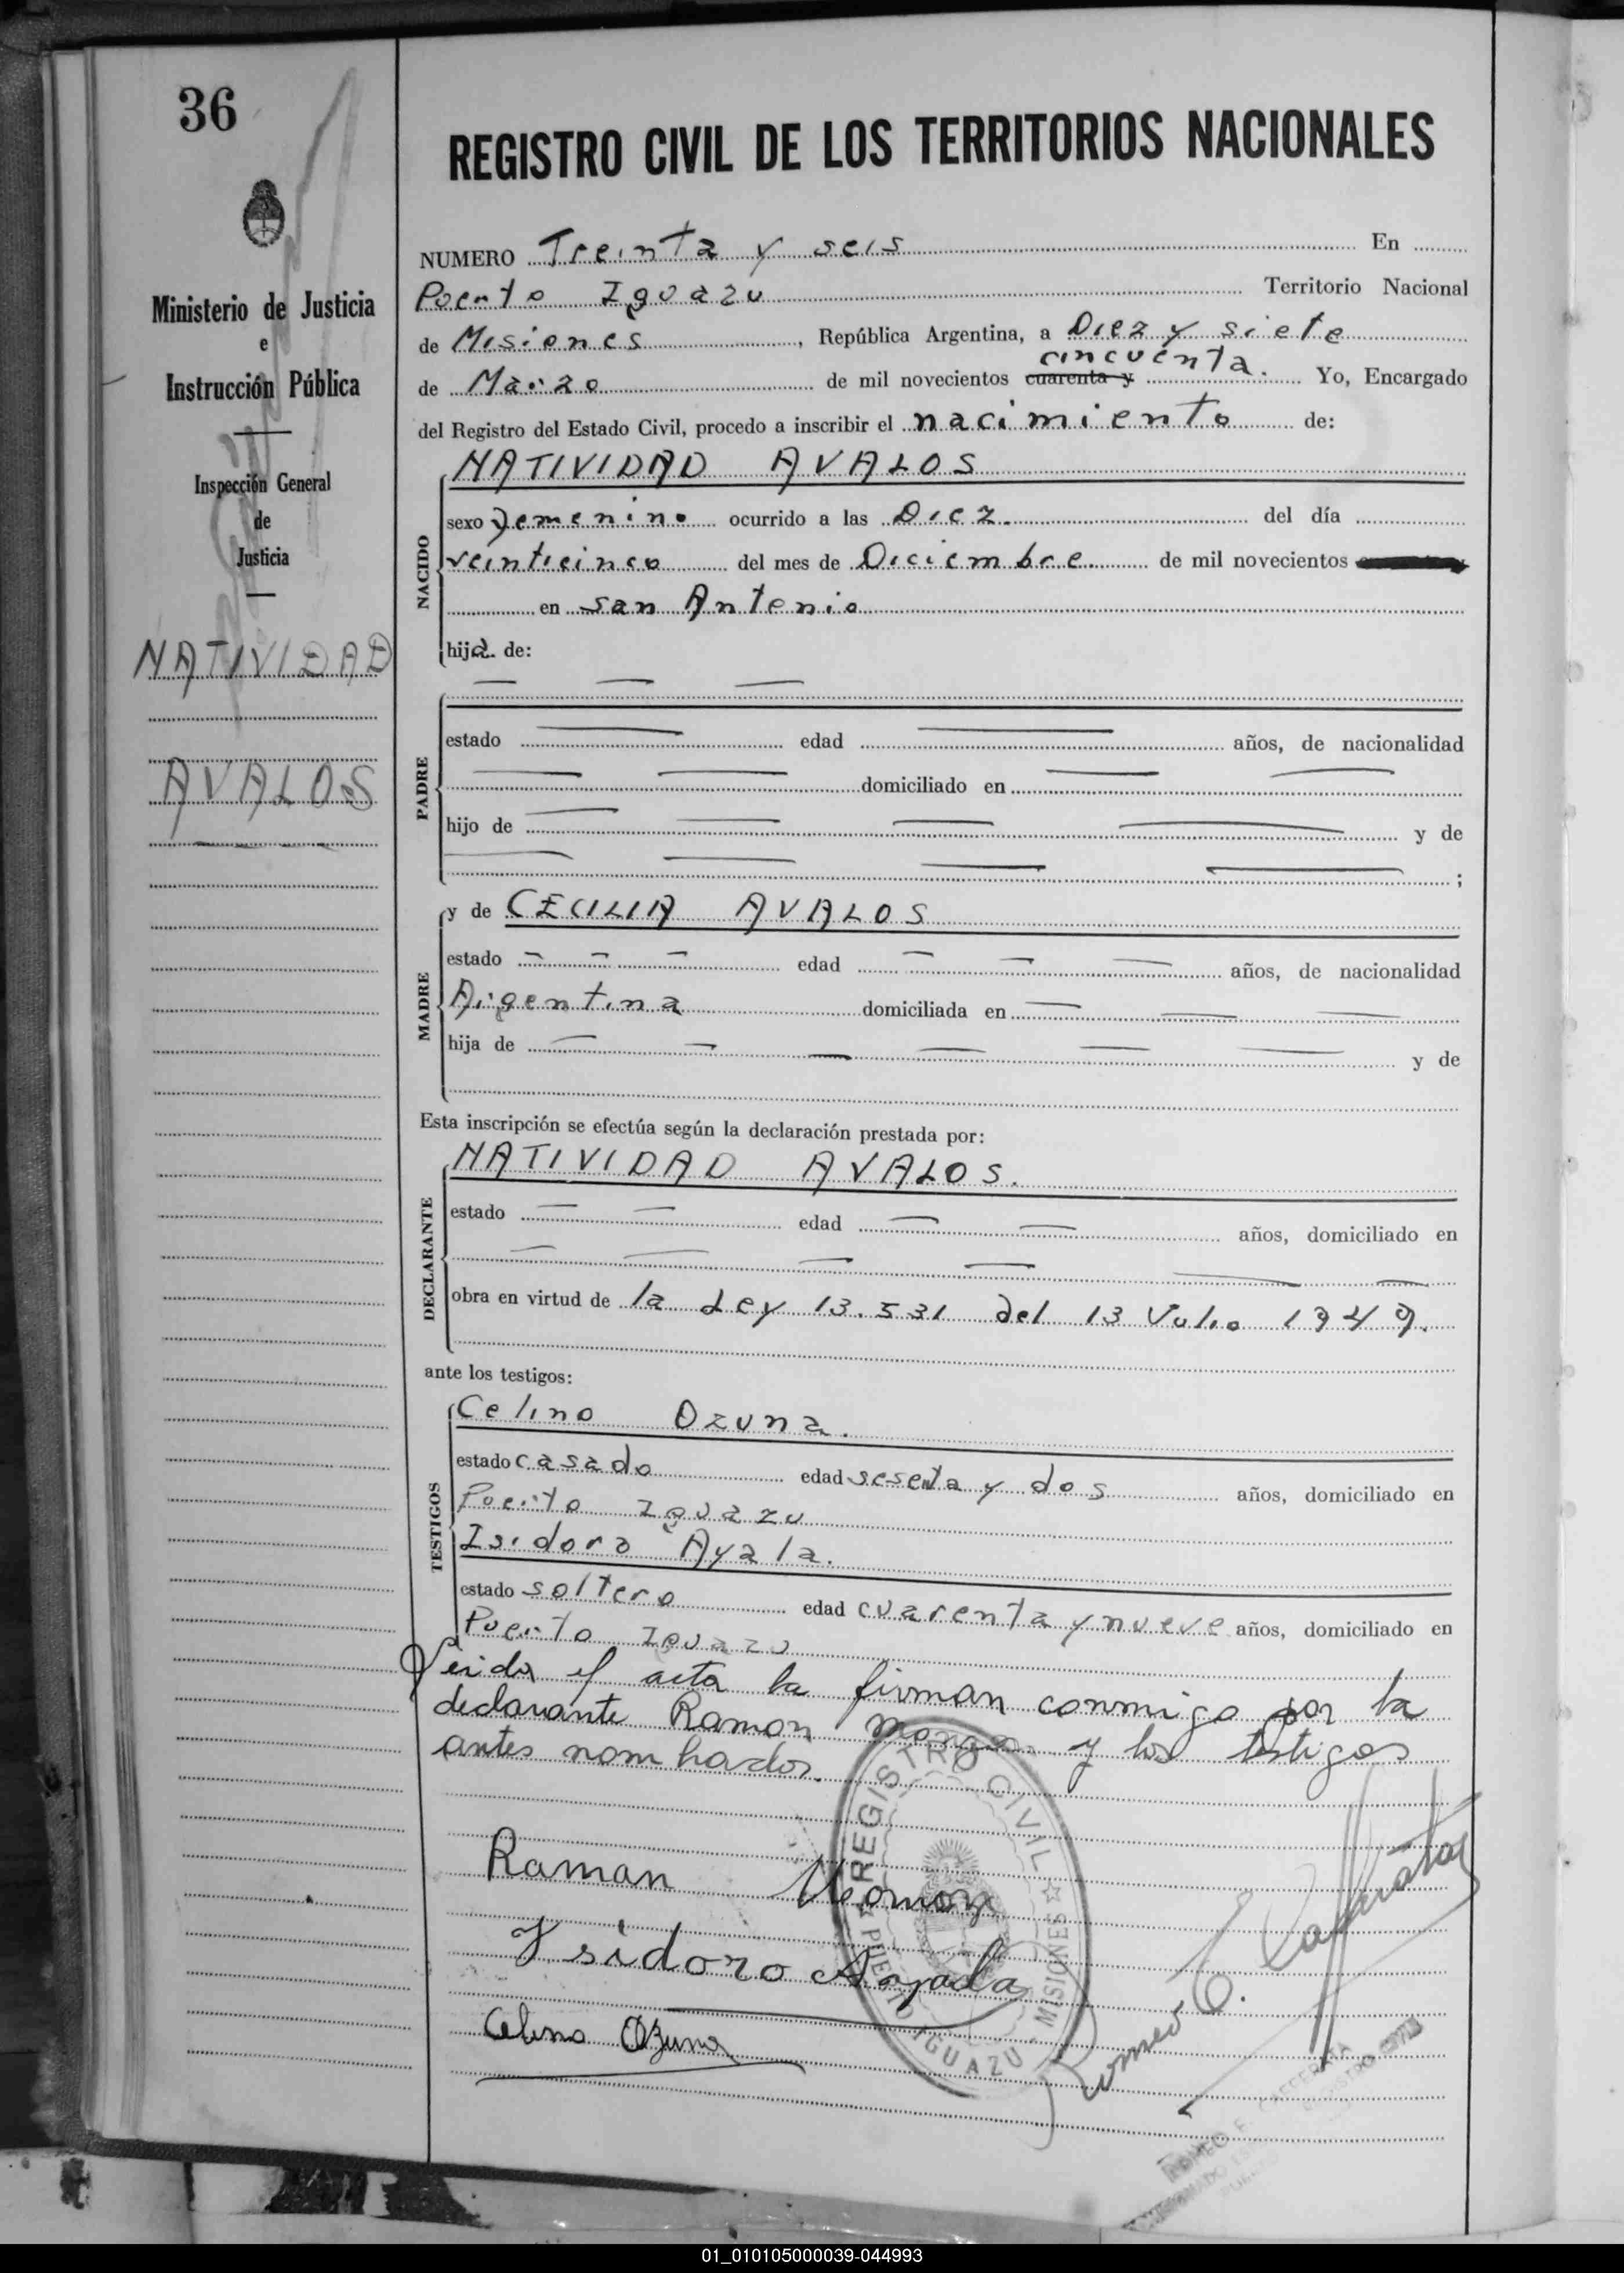 36
REGISTRO CIVIL DE LOS TERRITORIOS NACIONALES
Ministerio de Justicia
e
Instrucción Pública
Inspección General
de
Justicia
NATIVIDAD
AVALOS
NUMERO Treinta y seis En
Puerto Iguazu Territorio Nacional
de Misiones, República Argentina, a Diez y siete
de Marzo de mil novecientos cuarenta y cincuenta. Yo, Encargado
del Registro del Estado Civil, procedo a inscribir el nacimiento de:
NATIVIDAD AVALOS
NACIDO
sexo femenino ocurrido a las Diez. del día
veinticinco del mes de Diciembre de mil novecientos
en san Antonio
hija de:
PADRE
estado edad años, de nacionalidad
domiciliado en
hijo de y de
;
y de CECILIA AVALOS
MADRE
estado edad años, de nacionalidad
Argentina domiciliada en
hija de y de
Esta inscripción se efectúa según la declaración prestada por:
NATIVIDAD AVALOS.
DECLARANTE
estado edad años, domiciliado en
obra en virtud de la Ley 13.531 del 13 Julio 1949.
ante los testigos:
Celino Ozuna.
TESTIGOS
estado casado edad sesenta y dos años, domiciliado en
Puerto Iguazu
Isidoro Ayala.
estado soltero edad cuarenta y nueve años, domiciliado en
Puerto Iguazu
Leida el acta la firman conmigo por la
declarante Ramon y los testigos
antes nombrados.
REGISTRO CIVIL
PUERTO IGUAZU - MISIONES
Raman
Ysidoro Ayala
Celino Ozuna
Romeo E.
ROMEO E. CAFFERATA
01_010105000039-044993